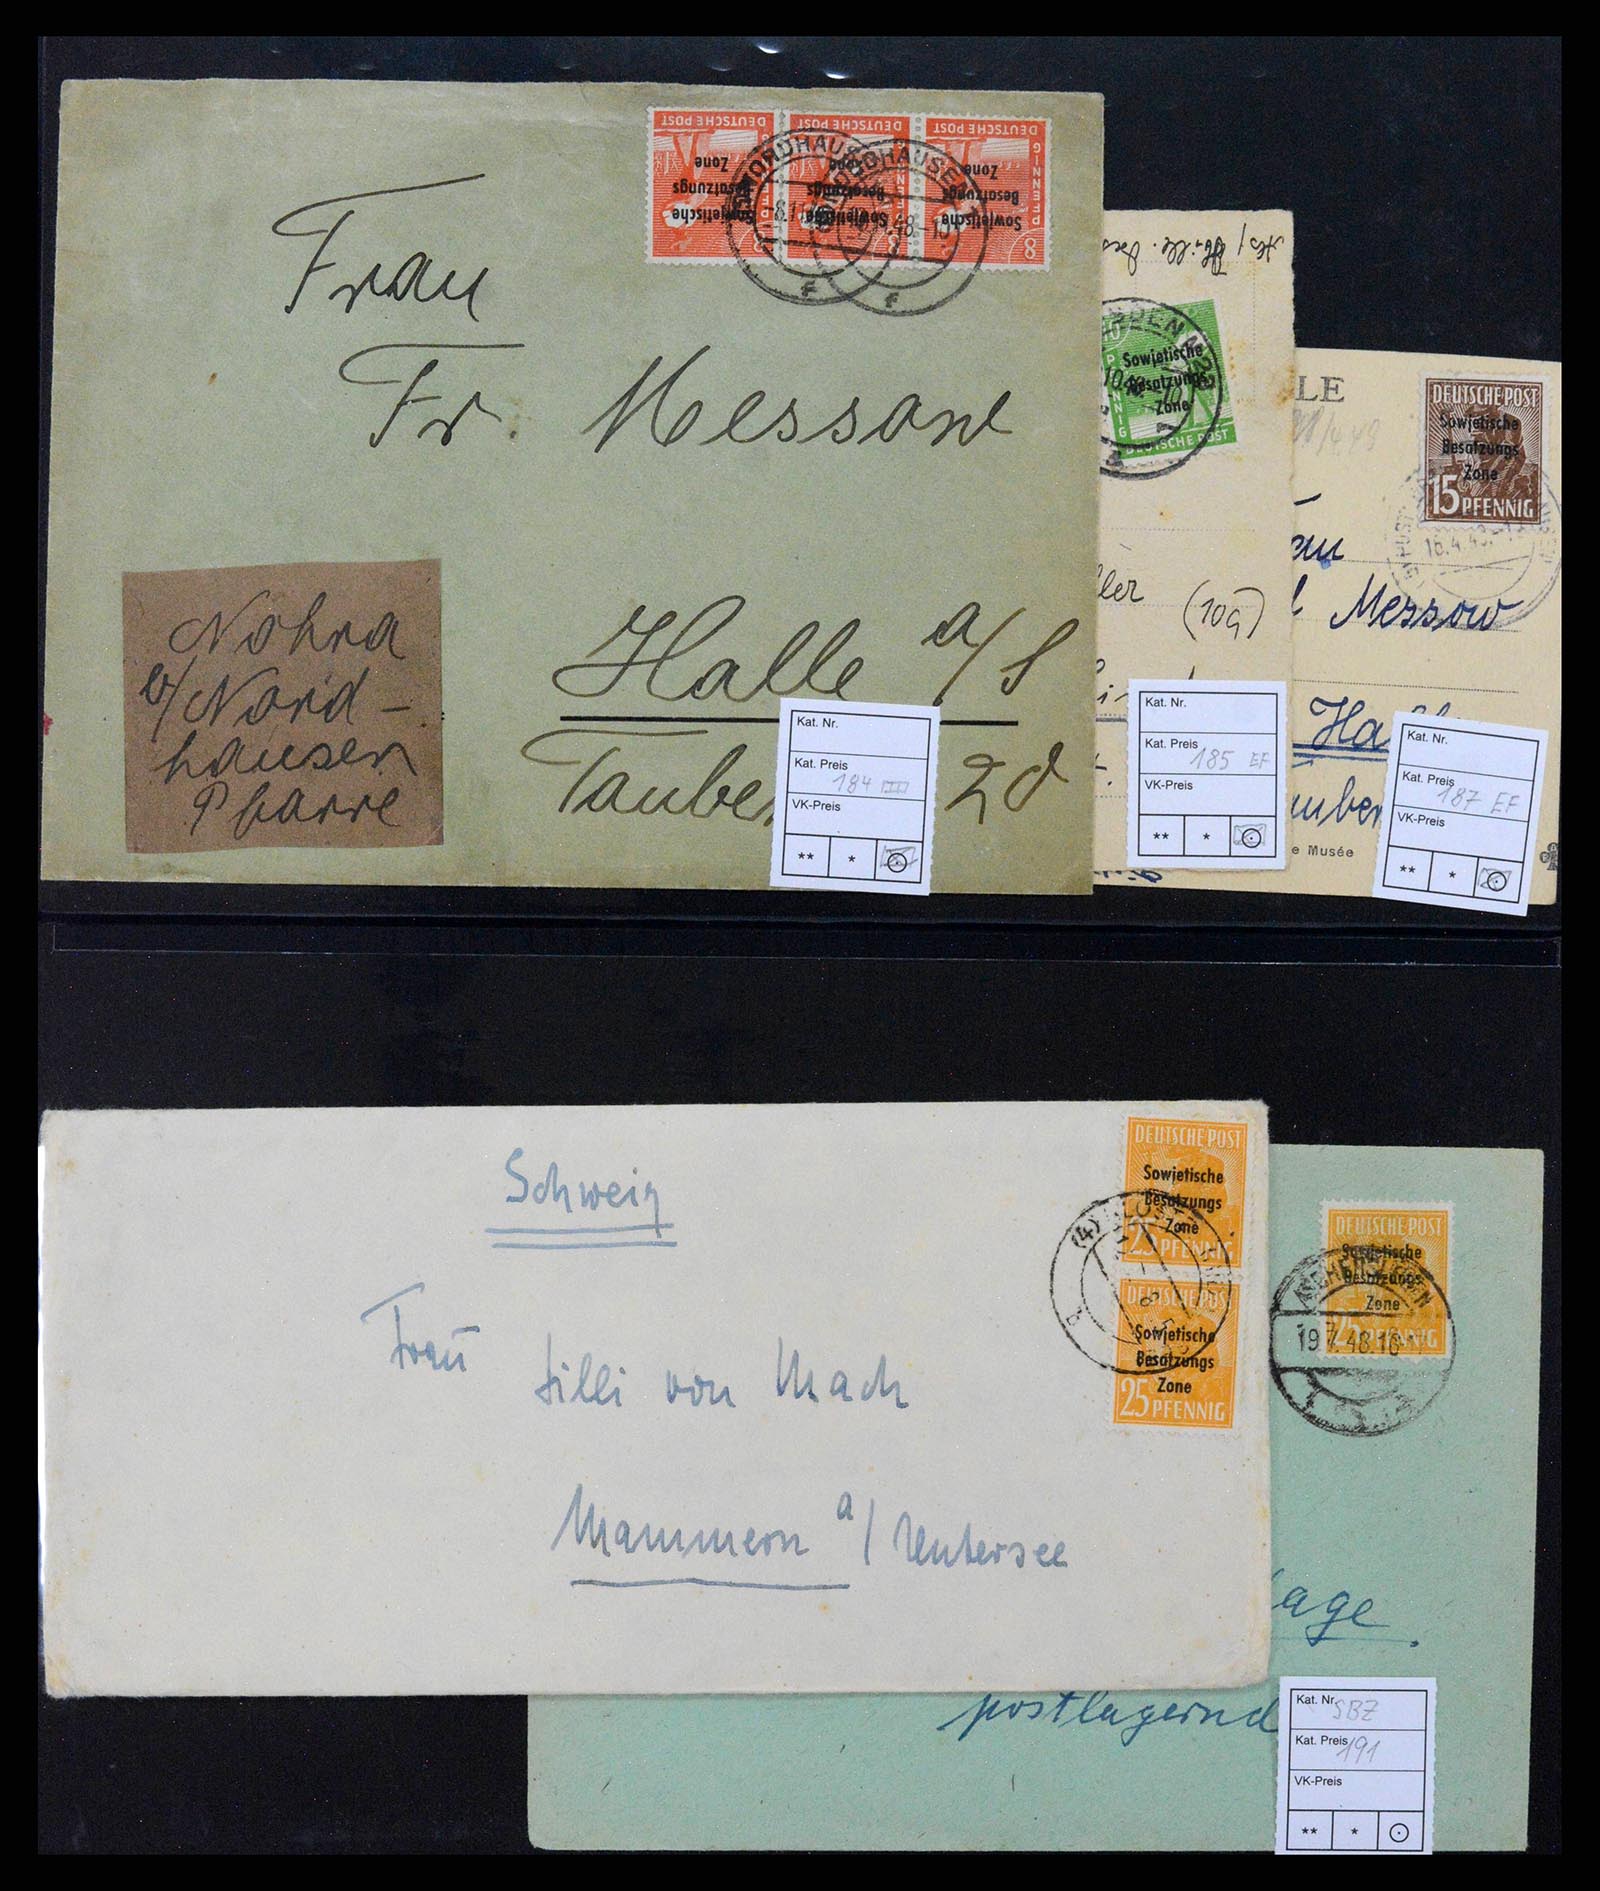 DEUTSCHE POST DEUTSCHE POST DEUTSCHE POST
PFENNIG
Sowjetische
Besatzungs
Zone
Sowjetische
Besatzungs
Zone
Sowjetische
Besatzungs
Zone
8
NORDHAUSEN
NORDHAUSEN
f
f
Frau
Fr. Messow
Halle a/S
Nohra
b/ Nord-
hausen
Pfarre
Kat. Nr.
Kat. Preis
184 III
VK-Preis
** *
10
Sowjetische
Besatzungs
Zone
DEUTSCHE POST
(10a)
Kat. Nr.
Kat. Preis
185 EF
VK-Preis
** *
LE
DEUTSCHE POST
Sowjetische
Besatzungs
Zone
15 PFENNIG
16.4.48
Messow
Kat. Nr.
Kat. Preis
187 EF
VK-Preis
** *
e Musée
Schweiz
Frau
Lilli von Mach
Mammern a/ Untersee
DEUTSCHE POST
Sowjetische
Besatzungs
Zone
25 PFENNIG
DEUTSCHE POST
Sowjetische
Besatzungs
Zone
25 PFENNIG
(4)
b
DEUTSCHE POST
Sowjetische
Besatzungs
Zone
25 PFENNIG
ASCHERSLEBEN
19.7.48.16
postlagernd
Kat. Nr.
SBZ
Kat. Preis
191
VK-Preis
** *